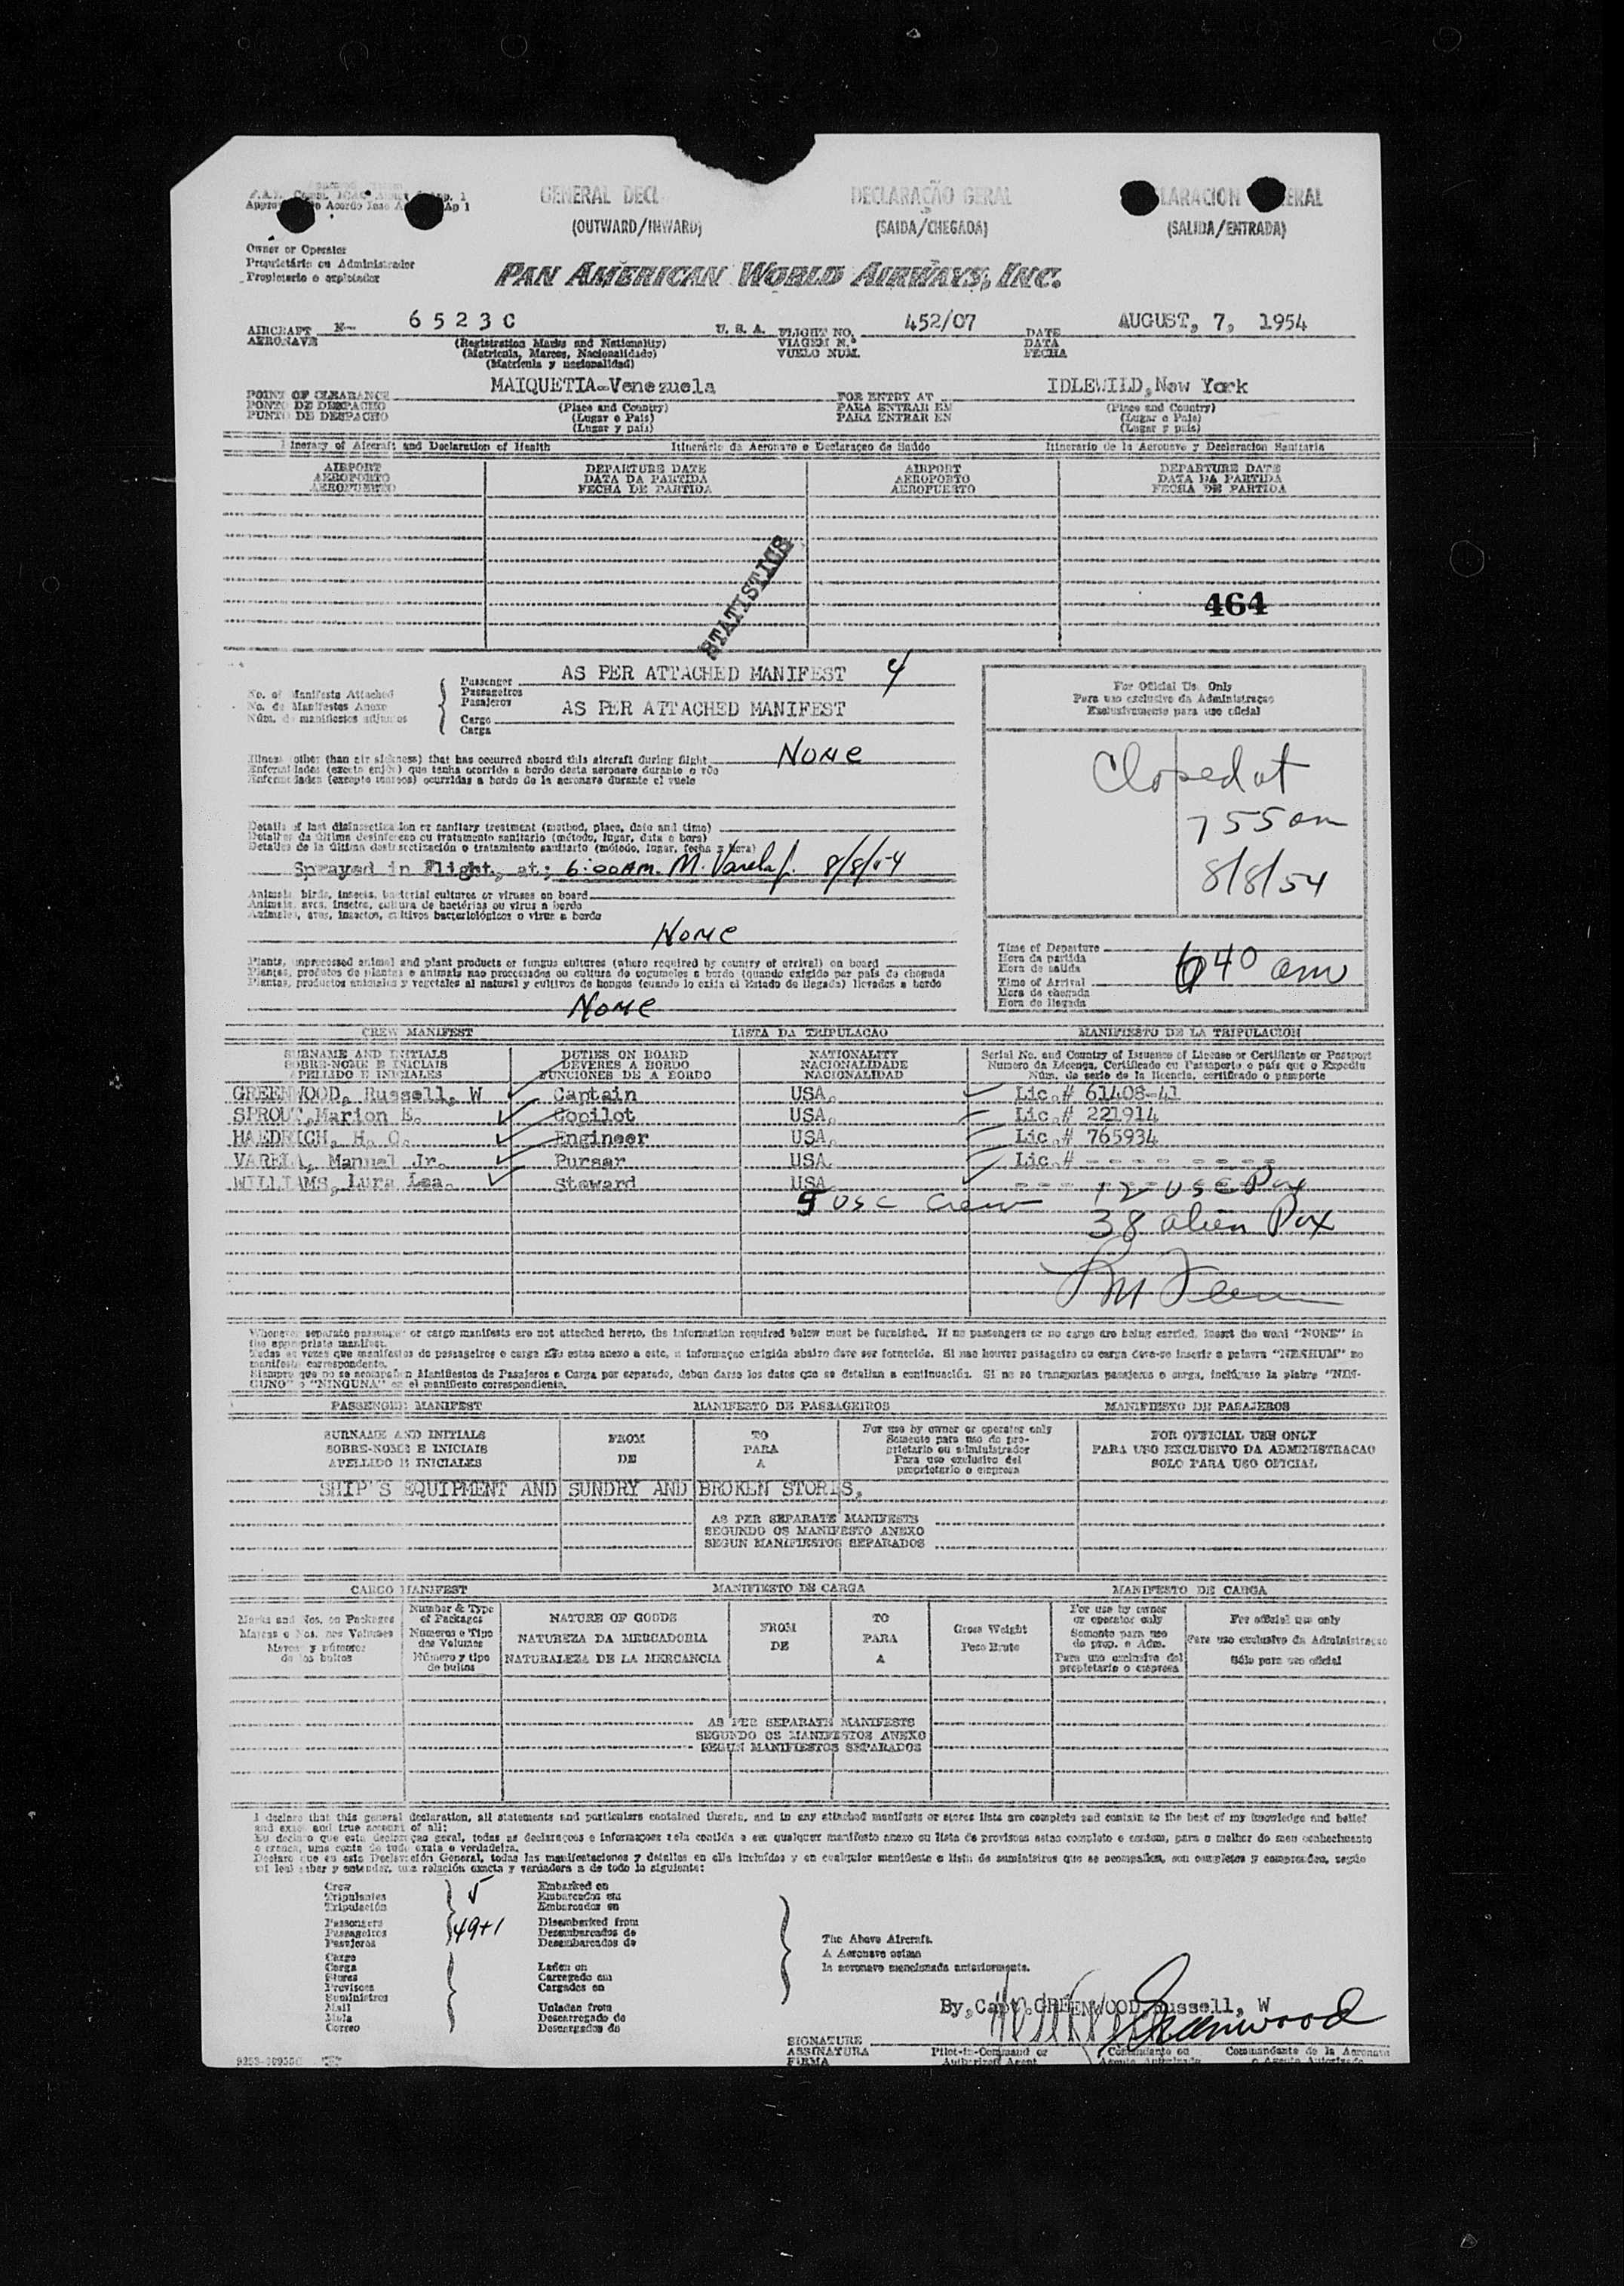 GENERAL DECL
DECLARAÇÃO GERAL
LARACION ERAL
(OUTWARD/INWARD)
(SAIDA/CHEGADA)
(SALIDA/ENTRADA)
Owner or Operator
Proprietário ou Administrador
Propietario o explotador
PAN AMERICAN WORLD AIRWAYS, INC.
AIRCRAFT N- 6523C U. S. A. FLIGHT NO. 452/07 DATE AUGUST, 7, 1954
AERONAVE (Registration Marks and Nationality) VIAGEM N.º DATA
(Matricula, Marcas, Nacionalidade) VUELO NUM. FECHA
(Matricula y nacionalidad)
POINT OF CLEARANCE MAIQUETIA-Venezuela FOR ENTRY AT IDLEWILD, New York
PONTO DE DESPACHO (Place and Country) PARA ENTRAR EM (Place and Country)
PUNTO DE DESPACHO (Lugar e Pais) PARA ENTRAR EN (Lugar e Pais)
(Lugar y pais) (Lugar y pais)
Itinerary of Aircraft and Declaration of Health Itinerário da Aeronave e Declaraçao de Saúde Itinerario de la Aeronave y Declaracion Sanitaria
AIRPORT DEPARTURE DATE AIRPORT DEPARTURE DATE
AEROPORTO DATA DA PARTIDA AEROPORTO DATA DA PARTIDA
AEROPUERTO FECHA DE PARTIDA AEROPUERTO FECHA DE PARTIDA
STATISTICS
464
No. of Manifests Attached
No. de Manifestos Anexo
Núm. de manifiestos adjuntos
Passenger AS PER ATTACHED MANIFEST 4
Passageiros
Pasajeros
Cargo AS PER ATTACHED MANIFEST
Carga
For Official Use Only
Para uso exclusivo da Administraçao
Exclusivamente para uso oficial
Closed at
755 am
8/8/54
Illness (other than air sickness) that has occurred aboard this aircraft during flight NONE
Enfermidades (exceto enjôo) que tenha ocorrido a bordo desta aeronave durante o vôo
Enfermedades (excepto mareos) ocurridas a bordo de la aeronave durante el vuelo
Details of last disinsectization or sanitary treatment (method, place, date and time)
Detalhes da última desinfeccao ou tratamento sanitário (método, lugar, data e hora)
Detalles de la última desinsectización o tratamiento sanitario (método, lugar, fecha y hora)
Sprayed in Flight, at; 6:00AM. M. Varela Jr. 8/8/54
Animals, birds, insects, bacterial cultures or viruses on board
Animais, aves, insetos, cultura de bactérias ou virus a bordo
Animales, aves, insectos, cultivos bacteriológicos o virus a bordo
NONE
Plants, unprocessed animal and plant products or fungus cultures (where required by country of arrival) on board
Plantas, produtos de plantas e animais nao processados ou cultura de cogumelos a bordo (quando exigido por pais de chegada
Plantas, productos animales y vegetales al natural y cultivos de hongos (cuando lo exija el Estado de llegada) llevados a bordo
NONE
Time of Departure
Hora da partida
Hora de salida
640 am
Time of Arrival
Hora de chegada
Hora de llegada
CREW MANIFEST LISTA DA TRIPULACAO MANIFIESTO DE LA TRIPULACION
SURNAME AND INITIALS DUTIES ON BOARD NATIONALITY Serial No. and Country of Issuance of License or Certificate or Passport
SOBRE-NOME E INICIAIS DEVERES A BORDO NACIONALIDADE Numero da Licença, Certificado ou Passaporte e pais que o Expediu
APELLIDO E INICIALES FUNCIONES DE A BORDO NACIONALIDAD Núm. de serie de la licencia, certificado o pasaporte
GREENWOOD, Russell, W Captain USA. Lic.# 61408-41
SPROUT, Marion E. Copilot USA. Lic.# 221914
HAEDRICH, H. C. Engineer USA. Lic.# 765934
VARELA, Manuel Jr. Purser USA. Lic.# - - - - - - - -
WILLIAMS, Lura Lea. Steward USA - - - - - - - -
5 USC Crew
12 USC Pax
38 alien Pax
Whenever separate passenger or cargo manifests are not attached hereto, the information required below must be furnished. If no passengers or no cargo are being carried, insert the word "NONE" in
the appropriate manifest.
Todas as vezes que manifestos de passageiros e carga não estao anexo a este, a informaçao exigida abaixo deve ser fornecida. Si nao houver passageiro ou carga deve-se inscrir a palavra "NENHUM" no
manifesto correspondente.
Siempre que no se acompañen Manifiestos de Pasajeros o Carga por separado, deben darse los datos que se detallan a continuación. Si no se transportan pasajeros o carga, inclúyase la plabra "NIN-
GUNO" o "NINGUNA" en el manifiesto correspondiente.
PASSENGER MANIFEST MANIFESTO DE PASSAGEIROS MANIFIESTO DE PASAJEROS
SURNAME AND INITIALS
SOBRE-NOME E INICIAIS
APELLIDO E INICIALES
FROM
DE
TO
PARA
A
For use by owner or operator only
Somente para uso do pro-
prietario ou administrador
Para uso exclusivo del
proprietario o empresa
FOR OFFICIAL USE ONLY
PARA USO EXCLUSIVO DA ADMINISTRACAO
SOLO PARA USO OFICIAL
SHIP'S EQUIPMENT AND SUNDRY AND BROKEN STORES,
AS PER SEPARATE MANIFESTS
SEGUNDO OS MANIFESTO ANEXO
SEGUN MANIFIESTOS SEPARADOS
CARGO MANIFEST MANIFIESTO DE CARGA MANIFESTO DE CARGA
Marks and Nos. on Packages
Marcas e Nos. nos Volumes
Marcas y números
de los bultos
Number & Type
of Packages
Numeros e Tipo
dos Volumes
Número y tipo
de bultos
NATURE OF GOODS
NATUREZA DA MERCADORIA
NATURALEZA DE LA MERCANCIA
FROM
DE
TO
PARA
A
Gross Weight
Peso Bruto
For use by owner
or operator only
Somente para uso
do prop. e Adm.
Para uso exclusivo del
propietario o empresa
For official use only
Para uso exclusivo da Administraçao
Sólo para uso oficial
AS PER SEPARATE MANIFESTS
SEGUNDO OS MANIFESTOS ANEXO
SEGUN MANIFIESTOS SEPARADOS
I declare that this general declaration, all statements and particulars contained therein, and in any attached manifests or stores lists are complete and contain to the best of my knowledge and belief
and exact and true account of all:
Eu declaro que esta declaraçao geral, todas as declaraçoes e informaçoes nela contida e em qualquer manifesto anexo ou lista de provisoes estao completo e contem, para o melhor do meu conhecimento
e crenca, uma conta de tudo exata e verdadeira.
Declaro que en esta Declaración General, todas las manifestaciones y detalles en ella incluidos y en cualquier manifiesto o lista de suministros que se acompañan, son completos y comprenden, según
mi leal saber y entender, una relación exacta y verdadera a de todo lo siguiente:
Crew 5 Embarked on
Tripulantes Embarcados em
Tripulación Embarcados en
Passengers 49+1 Disembarked from
Passageiros Desembarcados de
Pasajeros Desembarcados de
Cargo
Carga Laden on
Stores Carregado em
Provisoes Cargados en
Suministros
Mail Unladen from
Mala Descarregado de
Correo Descargados de
The Above Aircraft.
A Aeronave acima
la aeronave mencionada anteriormente.
By, Capt. GREENWOOD, Russell, W
Greenwood
SIGNATURE
ASSINATURA Pilot-in-Command or Comandante ou Comandante de la Aeronave
FIRMA Authorized Agent Agente Autorizado o Agente Autorizado